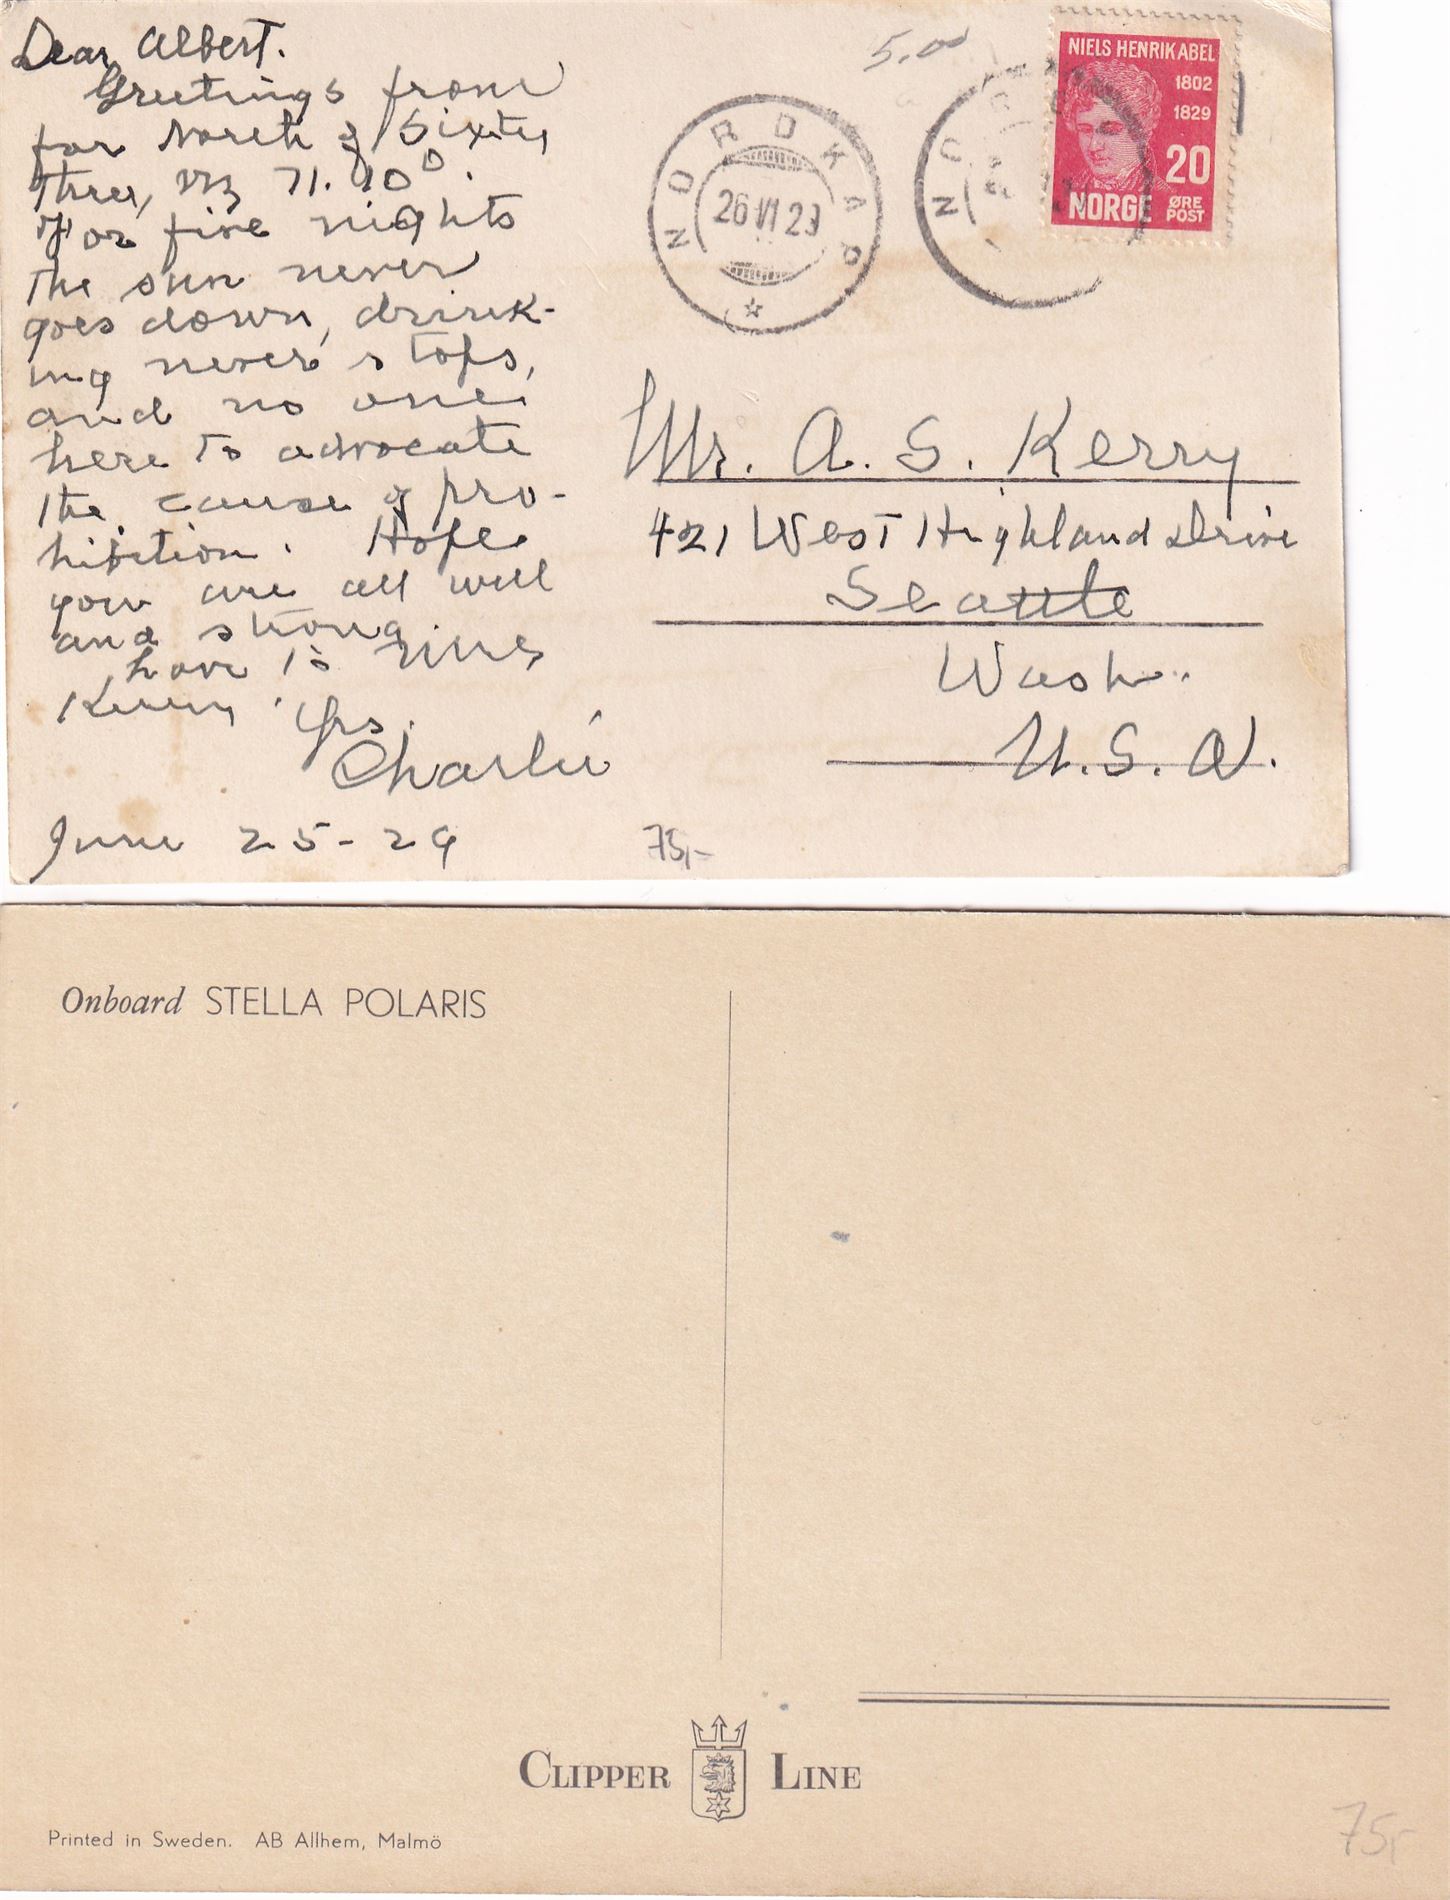 Dear Albert.
Greetings from
far North of Sixty
three, viz 71.10°.
For five nights
the sun never
goes down, drink-
ing never stops,
and no one
here to advocate
the cause of pro-
hibition. Hope
you are all well
and strong
Love to
Kerry. Yrs.
Charlie
June 25-29
5.00
NORDKAP
26 VI 29
NORDKAP
NIELS HENRIK ABEL
1802
1829
20
NORGE ØRE
POST
Mr. A. S. Kerry
421 West Highland Drive
Seattle
Wash.
U.S.A.
75,-
Onboard STELLA POLARIS
CLIPPER LINE
Printed in Sweden. AB Allhem, Malmö
75,-